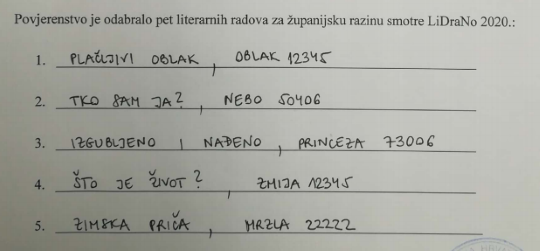 Povjerenstvo je odabralo pet literarnih radova za županijsku razinu smotre LiDraNo 2020.:
1. PLAČLJIVI OBLAK, OBLAK 12345
2. TKO SAM JA?, NEBO 50406
3. IZGUBLJENO I NAĐENO, PRINCEZA 73006
4. ŠTO JE ŽIVOT?, ZMIJA 12345
5. ZIMSKA PRIČA, MRZLA 22222